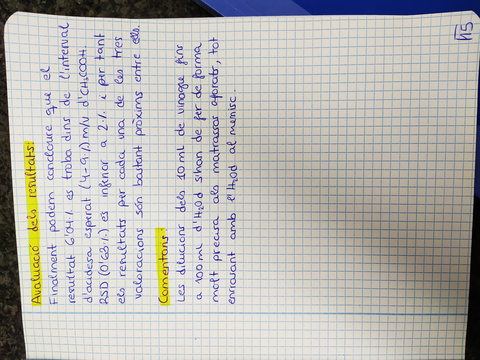 15
Avaluació dels resultats:
Finalment podem concloure que el
resultat 6'04 % es troba dins de l'interval
d'acidesa esperat (4-9%) m/v d'CH₃COOH.
RSD (0'63%) es inferior a 2% i per tant
els resultats per cada una de les tres
valoracions són bastant pròxims entre ells.
Comentaris:
Les dilucions dels 10 ml de vinagre fins
a 100 ml d'H₂Od s'han de fer de forma
molt precisa als matrassos aforats, tot
enrasant amb l'H₂Od al menisc.